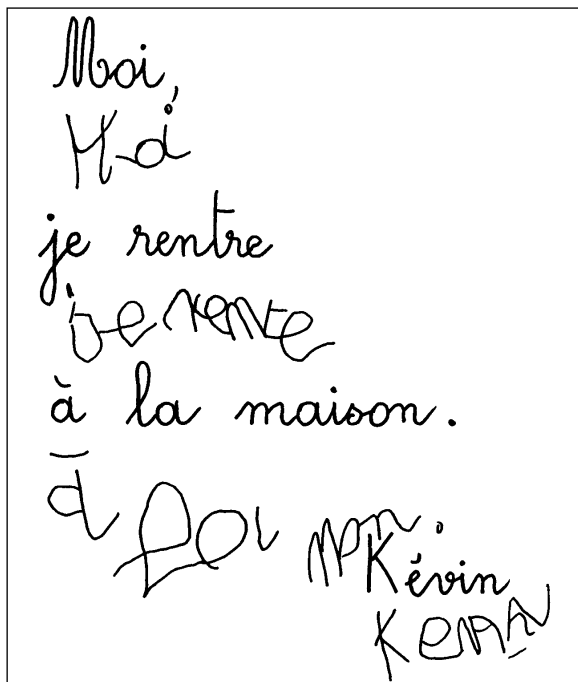 Moi,
Moi
je rentre
je rente
à la maison.
a la mon.
Kévin
Kevin